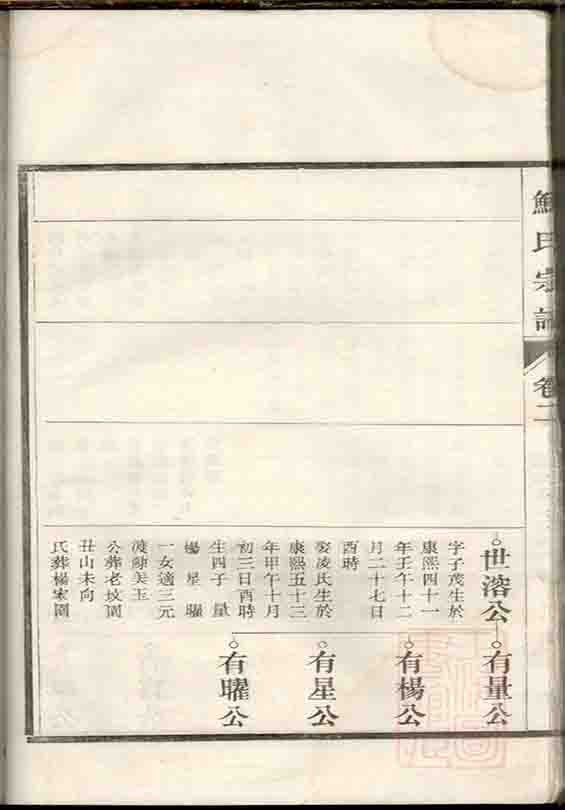 氏宗譜
卷二
世溶公
字子茂生於
康熙四十一
年壬午十二
月二十七日
酉時
娶凌氏生於
康熙五十三
年甲午十月
初三日酉時
生四子 量
楊 星 曜
一女適三元
渡 美玉
公葬老坟園
丑山未向
氏葬楊家園
有量公
有楊公
有星公
有曜公